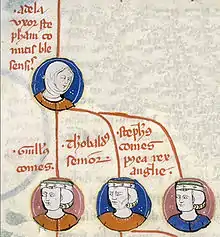 adela
uxor ste
phani co
mitis ble
sensis.
Guill's
comes.
Thobald'
senior
Steph's
comes
postea rex
anglie.